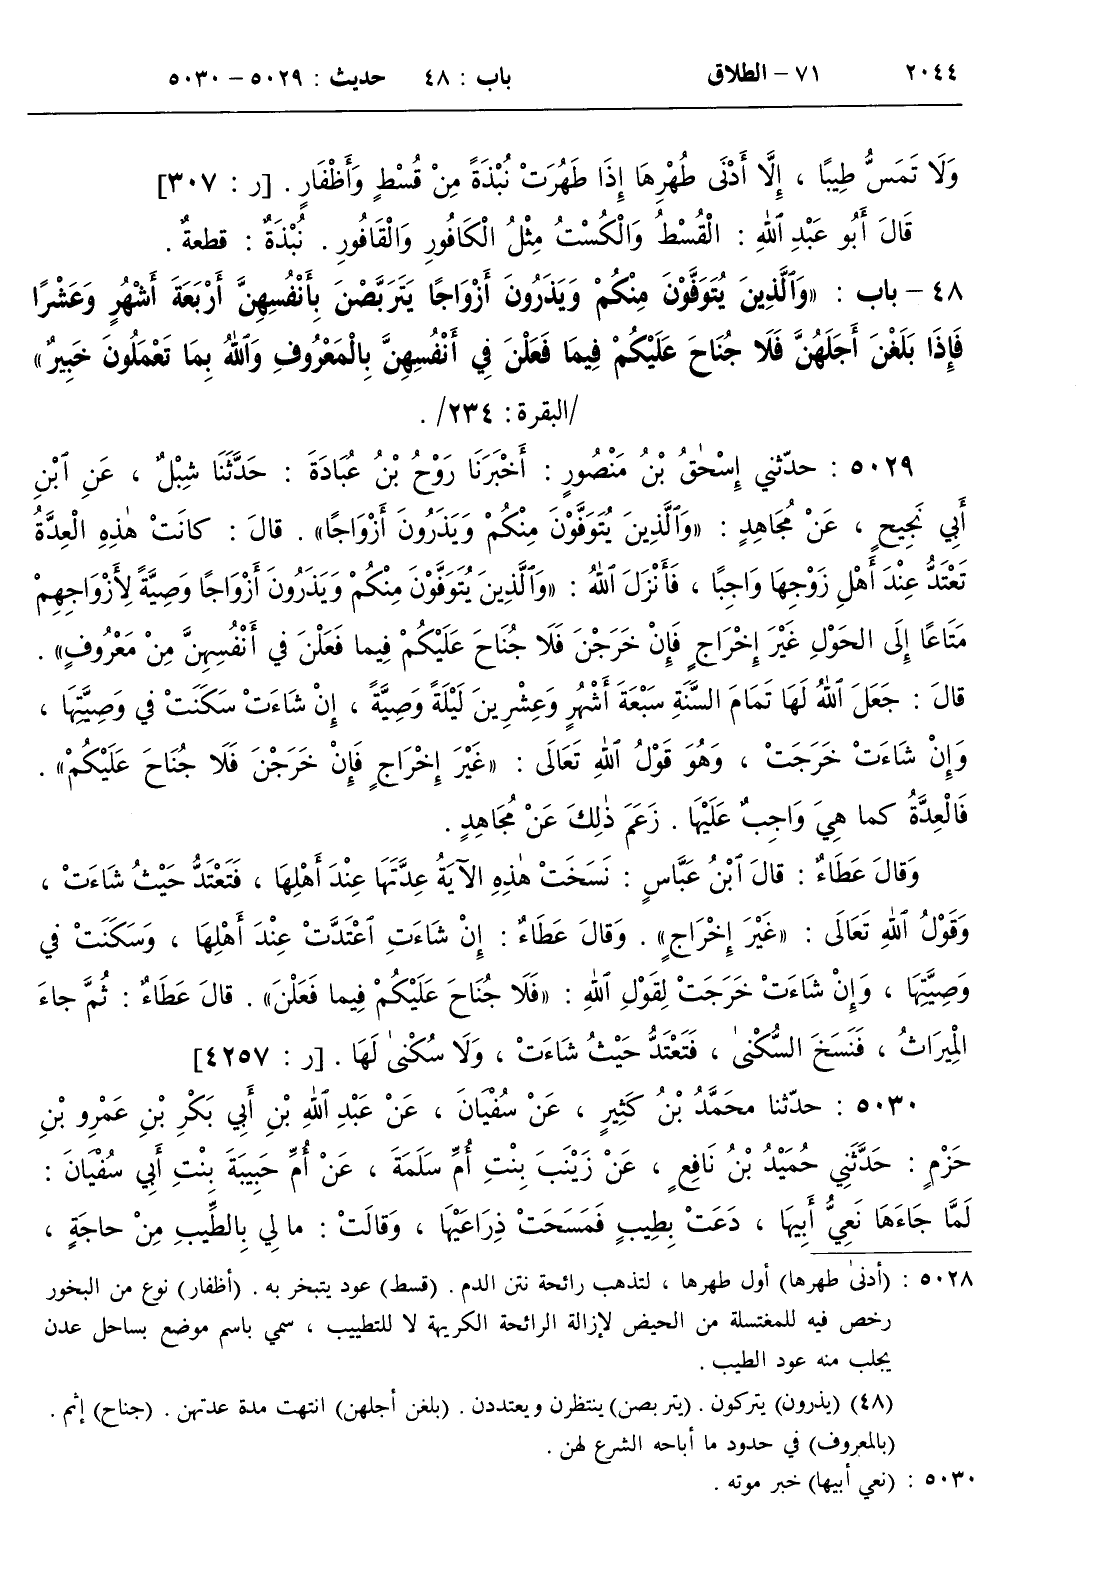 ٢٠٤٤ ٧١ – الطلاق باب : ٤٨ حديث : ٥٠٢٩ – ٥٠٣٠
وَلَا تَمَسُّ طِيبًا ، إِلَّا أَدْنَى طُهْرِهَا إِذَا طَهُرَتْ نُبْذَةً مِنْ قُسْطٍ وَأَظْفَارٍ . [ر : ٣٠٧]
قَالَ أَبُو عَبْدِ ٱللهِ : الْقُسْطُ وَالْكُسْتُ مِثْلُ الْكَافُورِ وَالْقَافُورِ . نُبْذَةٌ : قطعةٌ .
٤٨ – باب : «وَٱلَّذِينَ يُتَوَفَّوْنَ مِنْكُمْ وَيَذَرُونَ أَزْوَاجًا يَتَرَبَّصْنَ بِأَنْفُسِهِنَّ أَرْبَعَةَ أَشْهُرٍ وَعَشْرًا
فَإِذَا بَلَغْنَ أَجَلَهُنَّ فَلَا جُنَاحَ عَلَيْكُمْ فِيمَا فَعَلْنَ فِي أَنْفُسِهِنَّ بِالْمَعْرُوفِ وَٱللهُ بِمَا تَعْمَلُونَ خَبِيرٌ»
/البقرة : ٢٣٤/ .
٥٠٢٩ : حدّثني إِسْحٰقُ بْنُ مَنْصُورٍ : أَخْبَرَنَا رَوْحُ بْنُ عُبَادَةَ : حَدَّثَنَا شِبْلٌ ، عَنِ ٱبْنِ
أَبِي نَجِيحٍ ، عَنْ مُجَاهِدٍ : «وَٱلَّذِينَ يُتَوَفَّوْنَ مِنْكُمْ وَيَذَرُونَ أَزْوَاجًا» . قالَ : كانَتْ هٰذِهِ الْعِدَّةُ
تَعْتَدُّ عِنْدَ أَهْلِ زَوْجِهَا وَاجِبًا ، فَأَنْزَلَ ٱللهُ : «وَٱلَّذِينَ يُتَوَفَّوْنَ مِنْكُمْ وَيَذَرُونَ أَزْوَاجًا وَصِيَّةً لِأَزْوَاجِهِمْ
مَتَاعًا إِلَى الحَوْلِ غَيْرَ إِخْرَاجٍ فَإِنْ خَرَجْنَ فَلَا جُنَاحَ عَلَيْكُمْ فِيما فَعَلْنَ فِي أَنْفُسِهِنَّ مِنْ مَعْرُوفٍ» .
قالَ : جَعَلَ ٱللهُ لَهَا تَمَامَ السَّنَةِ سَبْعَةَ أَشْهُرٍ وَعِشْرِينَ لَيْلَةً وَصِيَّةً ، إِنْ شَاءَتْ سَكَنَتْ في وَصِيَّتِهَا ،
وَإِنْ شَاءَتْ خَرَجَتْ ، وَهُوَ قَوْلُ ٱللهِ تَعَالَى : «غَيْرَ إِخْرَاجٍ فَإِنْ خَرَجْنَ فَلَا جُنَاحَ عَلَيْكُمْ» .
فَالْعِدَّةُ كما هِيَ وَاجِبٌ عَلَيْهَا . زَعَمَ ذٰلِكَ عَنْ مُجَاهِدٍ .
وَقالَ عَطَاءٌ : قالَ ٱبْنُ عَبَّاسٍ : نَسَخَتْ هٰذِهِ الآيَةُ عِدَّتَهَا عِنْدَ أَهْلِهَا ، فَتَعْتَدُّ حَيْثُ شَاءَتْ ،
وَقَوْلُ ٱللهِ تَعَالَى : «غَيْرَ إِخْرَاجٍ» . وَقالَ عَطَاءٌ : إِنْ شَاءَتِ ٱعْتَدَّتْ عِنْدَ أَهْلِهَا ، وَسَكَنَتْ في
وَصِيَّتِهَا ، وَإِنْ شَاءَتْ خَرَجَتْ لِقَوْلِ ٱللهِ : «فَلَا جُنَاحَ عَلَيْكُمْ فِيما فَعَلْنَ» . قالَ عَطَاءٌ : ثُمَّ جاءَ
الْمِيرَاثُ ، فَنَسَخَ السُّكْنىٰ ، فَتَعْتَدُّ حَيْثُ شَاءَتْ ، وَلَا سُكْنىٰ لَهَا . [ر : ٤٢٥٧]
٥٠٣٠ : حدّثنا محَمَّدُ بْنُ كَثِيرٍ ، عَنْ سُفْيَانَ ، عَنْ عَبْدِ ٱللهِ بْنِ أَبِي بَكْرِ بْنِ عَمْرِو بْنِ
حَزْمٍ : حَدَّثَنِي حُمَيْدُ بْنُ نَافِعٍ ، عَنْ زَيْنَبَ بِنْتِ أُمِّ سَلَمَةَ ، عَنْ أُمِّ حَبِيبَةَ بِنْتِ أَبِي سُفْيَانَ :
لَمَّا جَاءَهَا نَعِيُّ أَبِيهَا ، دَعَتْ بِطِيبٍ فَمَسَحَتْ ذِرَاعَيْهَا ، وَقالَتْ : ما لِي بِالطِّيبِ مِنْ حاجَةٍ ،
٥٠٢٨ : (أدنىٰ طهرها) أول طهرها ، لتذهب رائحة نتن الدم . (قسط) عود يتبخر به . (أظفار) نوع من البخور
رخص فيه للمغتسلة من الحيض لإزالة الرائحة الكريهة لا للتطييب ، سمي باسم موضع بساحل عدن
يجلب منه عود الطيب .
(٤٨) (يذرون) يتركون . (يتربصن) ينتظرن ويعتددن . (بلغن أجلهن) انتهت مدة عدتهن . (جناح) إثم .
(بالمعروف) في حدود ما أباحه الشرع لهن .
٥٠٣٠ : (نعي أبيها) خبر موته .